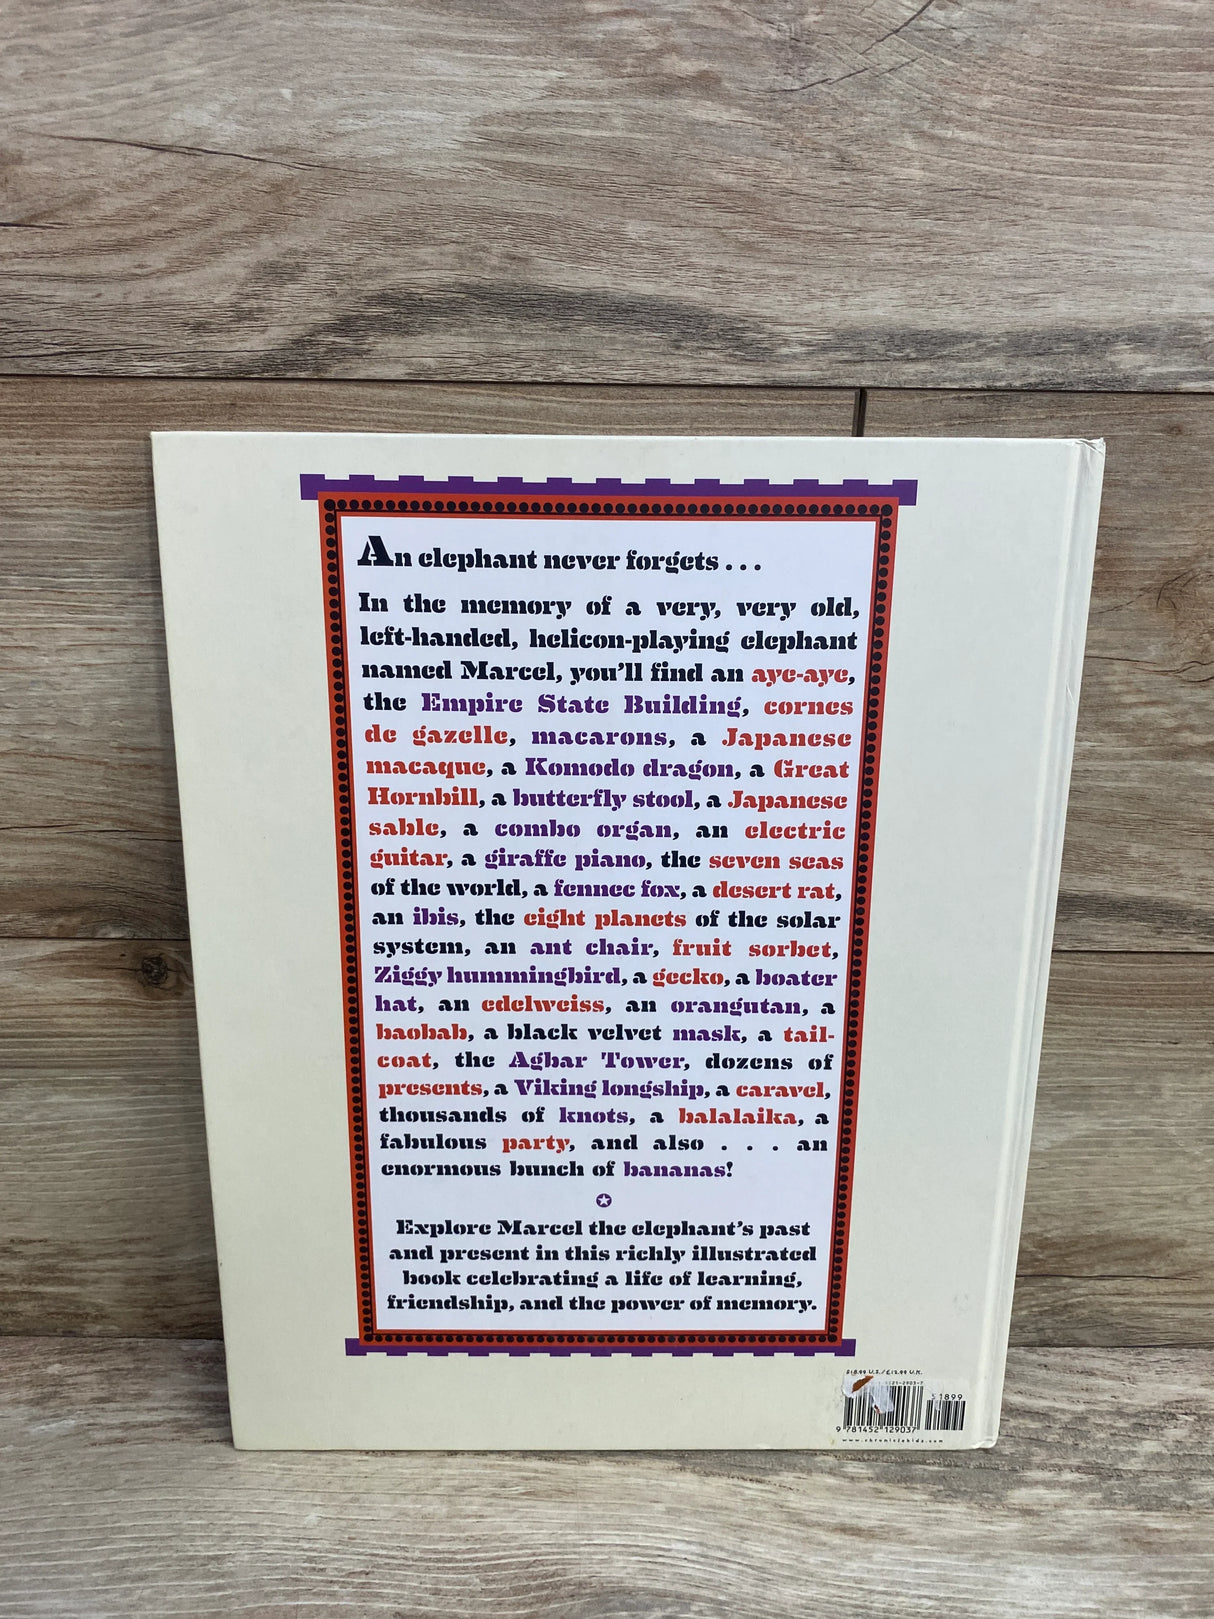 An elephant never forgets . . .
In the memory of a very, very old,
left-handed, helicon-playing elephant
named Marcel, you'll find an aye-aye,
the Empire State Building, cornes
de gazelle, macarons, a Japanese
macaque, a Komodo dragon, a Great
Hornbill, a butterfly stool, a Japanese
sable, a combo organ, an electric
guitar, a giraffe piano, the seven seas
of the world, a fennec fox, a desert rat,
an ibis, the eight planets of the solar
system, an ant chair, fruit sorbet,
Ziggy hummingbird, a gecko, a boater
hat, an edelweiss, an orangutan, a
baobab, a black velvet mask, a tail-
coat, the Agbar Tower, dozens of
presents, a Viking longship, a caravel,
thousands of knots, a balalaika, a
fabulous party, and also . . . an
enormous bunch of bananas!
Explore Marcel the elephant's past
and present in this richly illustrated
book celebrating a life of learning,
friendship, and the power of memory.
$18.99 U.S./£12.99 U.K.
51899
9 781452 129037
www.chroniclekids.com